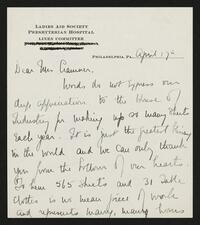 LADIES AID SOCIETY
PRESBYTERIAN HOSPITAL
LINEN COMMITTEE
PHILADELPHIA, PA., April 17th
Dear Mrs
Words do not express our
deep appreciation to the House of
Industry for making up so many sheets
each year. It is just the greatest
in the world and we can only thank
you from the bottom of our hearts.
To hem 565 sheets and 31 Table
Clothes is no mean piece of work
and represents many, many hours